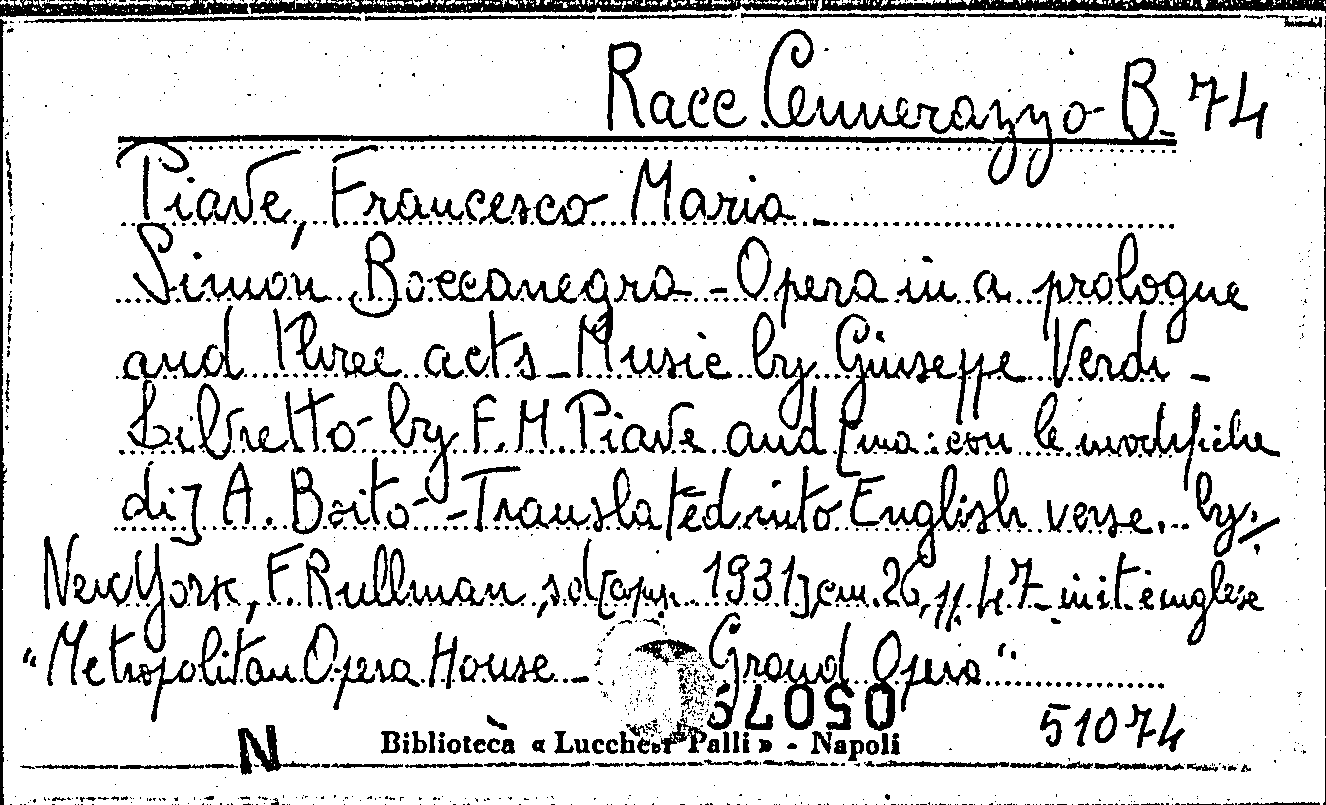 Racc. Cennerazzo B. 74
Piave, Francesco Maria -
Simon Boccanegra - Opera in a prologue
and three acts - Music by Giuseppe Verdi -
Libretto by F. M. Piave and [ma: con le modifiche
di] A. Boito - Translated into English verse... by
New York, F. Rullman, s.d. [1931], cm. 26, pp. 47 - in it. e inglese
"Metropolitan Opera House - Grand Opera"
51074
N Biblioteca « Lucchesi Palli » - Napoli